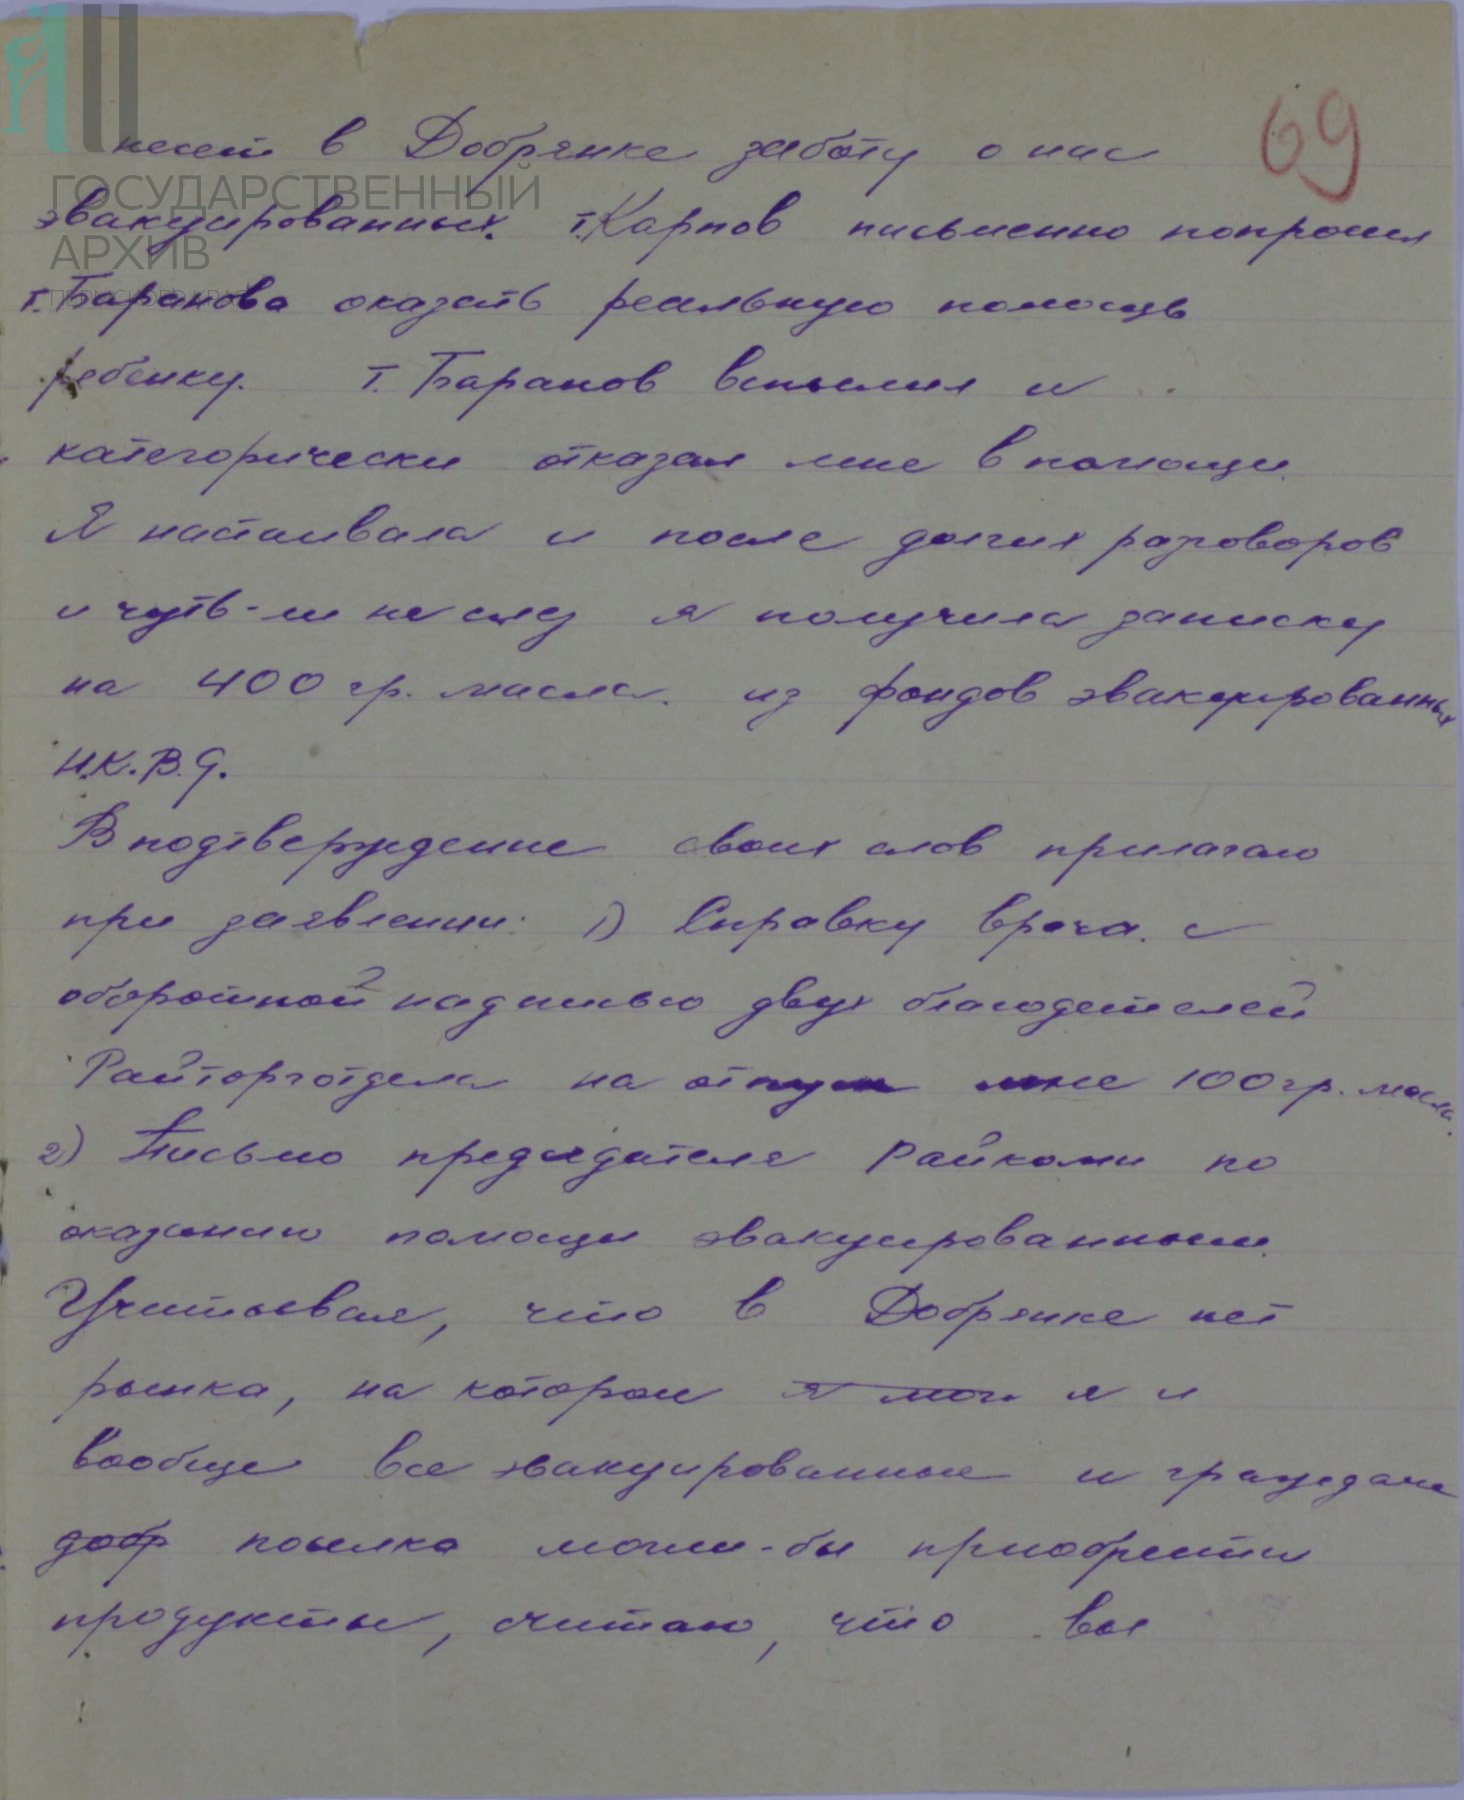 69
несет в Добрянке заботу о нас
эвакуированных. т. Карпов письменно попросил
т. Баранова оказать реальную помощь
ребенку. Т. Баранов вспылил и
категорически отказал мне в помощи.
Я настаивала и после долгих разговоров
и чуть-ли не слез я получила записку
на 400 гр. масла. из фондов эвакуированных
Н.К.В.Д.
В подтверждение своих слов прилагаю
при заявлении: 1) Справку врача. с
оборотной надписью двух благодетелей
Райторготдела на отпуск мне 100 гр. масла.
2) Письмо председателя Райкома по
оказанию помощи эвакуированным.
Учитывая, что в Добрянке нет
рынка, на котором я могл я и
вообще все эвакуированные и граждане
добр поселка могли-бы приобрести
продукты, считаю, что вы
ГОСУДАРСТВЕННЫЙ
АРХИВ